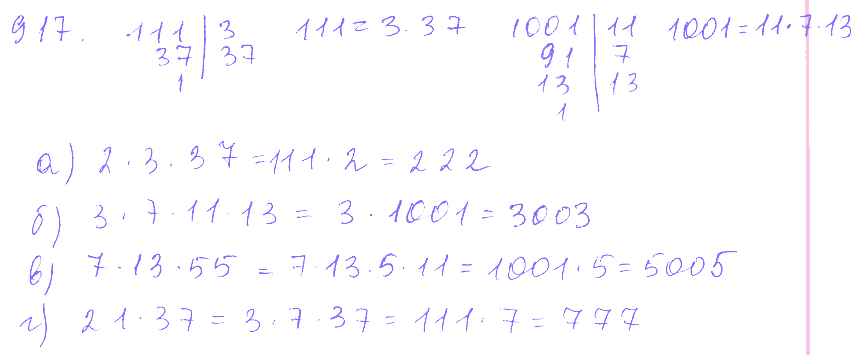 917. 111 | 3 111 = 3.37 1001 | 11 1001 = 11.7.13
37 | 37 91 | 7
1 13 | 13
1
а) 2.3.37 = 111.2 = 222
б) 3.7.11.13 = 3.1001 = 3003
в) 7.13.55 = 7.13.5.11 = 1001.5 = 5005
г) 21.37 = 3.7.37 = 111.7 = 777